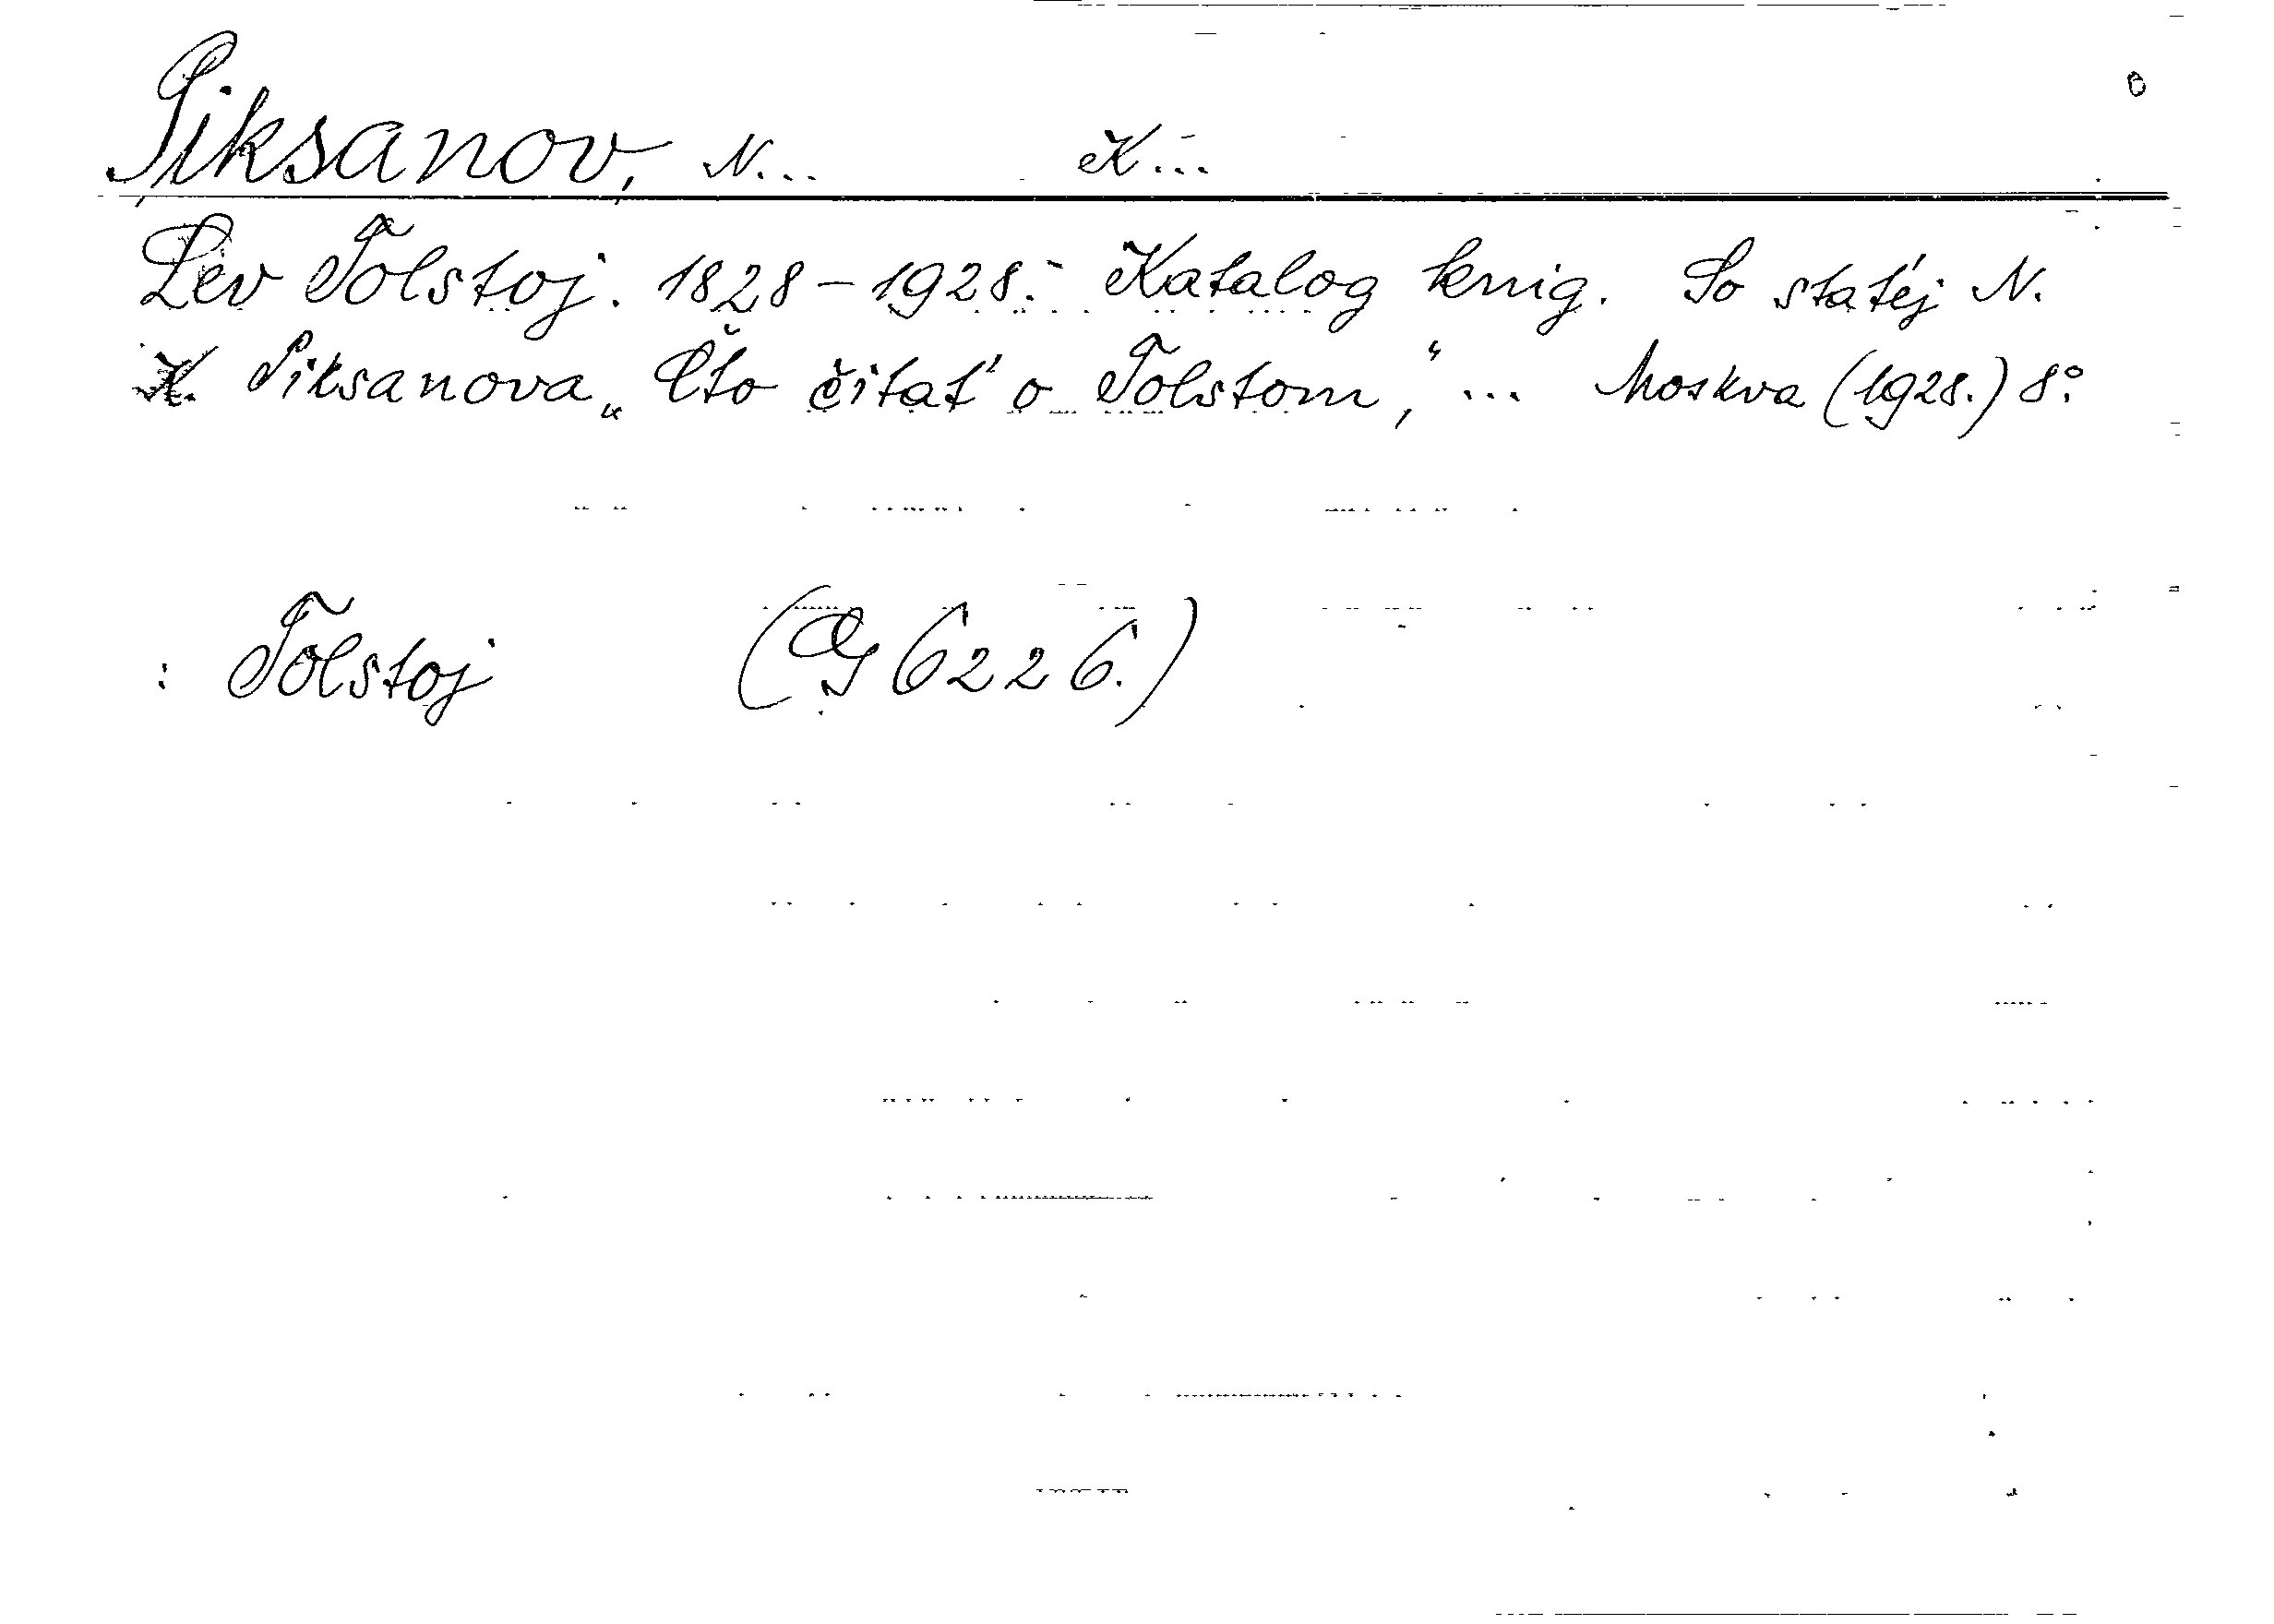 Piksanov, N... K...
Lev Tolstoj. 1828-1928. Katalog knig. So stat'ej N.
K. Piksanova „Čto čitat' o Tolstom,“ ... Moskva (1928.) 8°.
: Tolstoj (G 6226.)